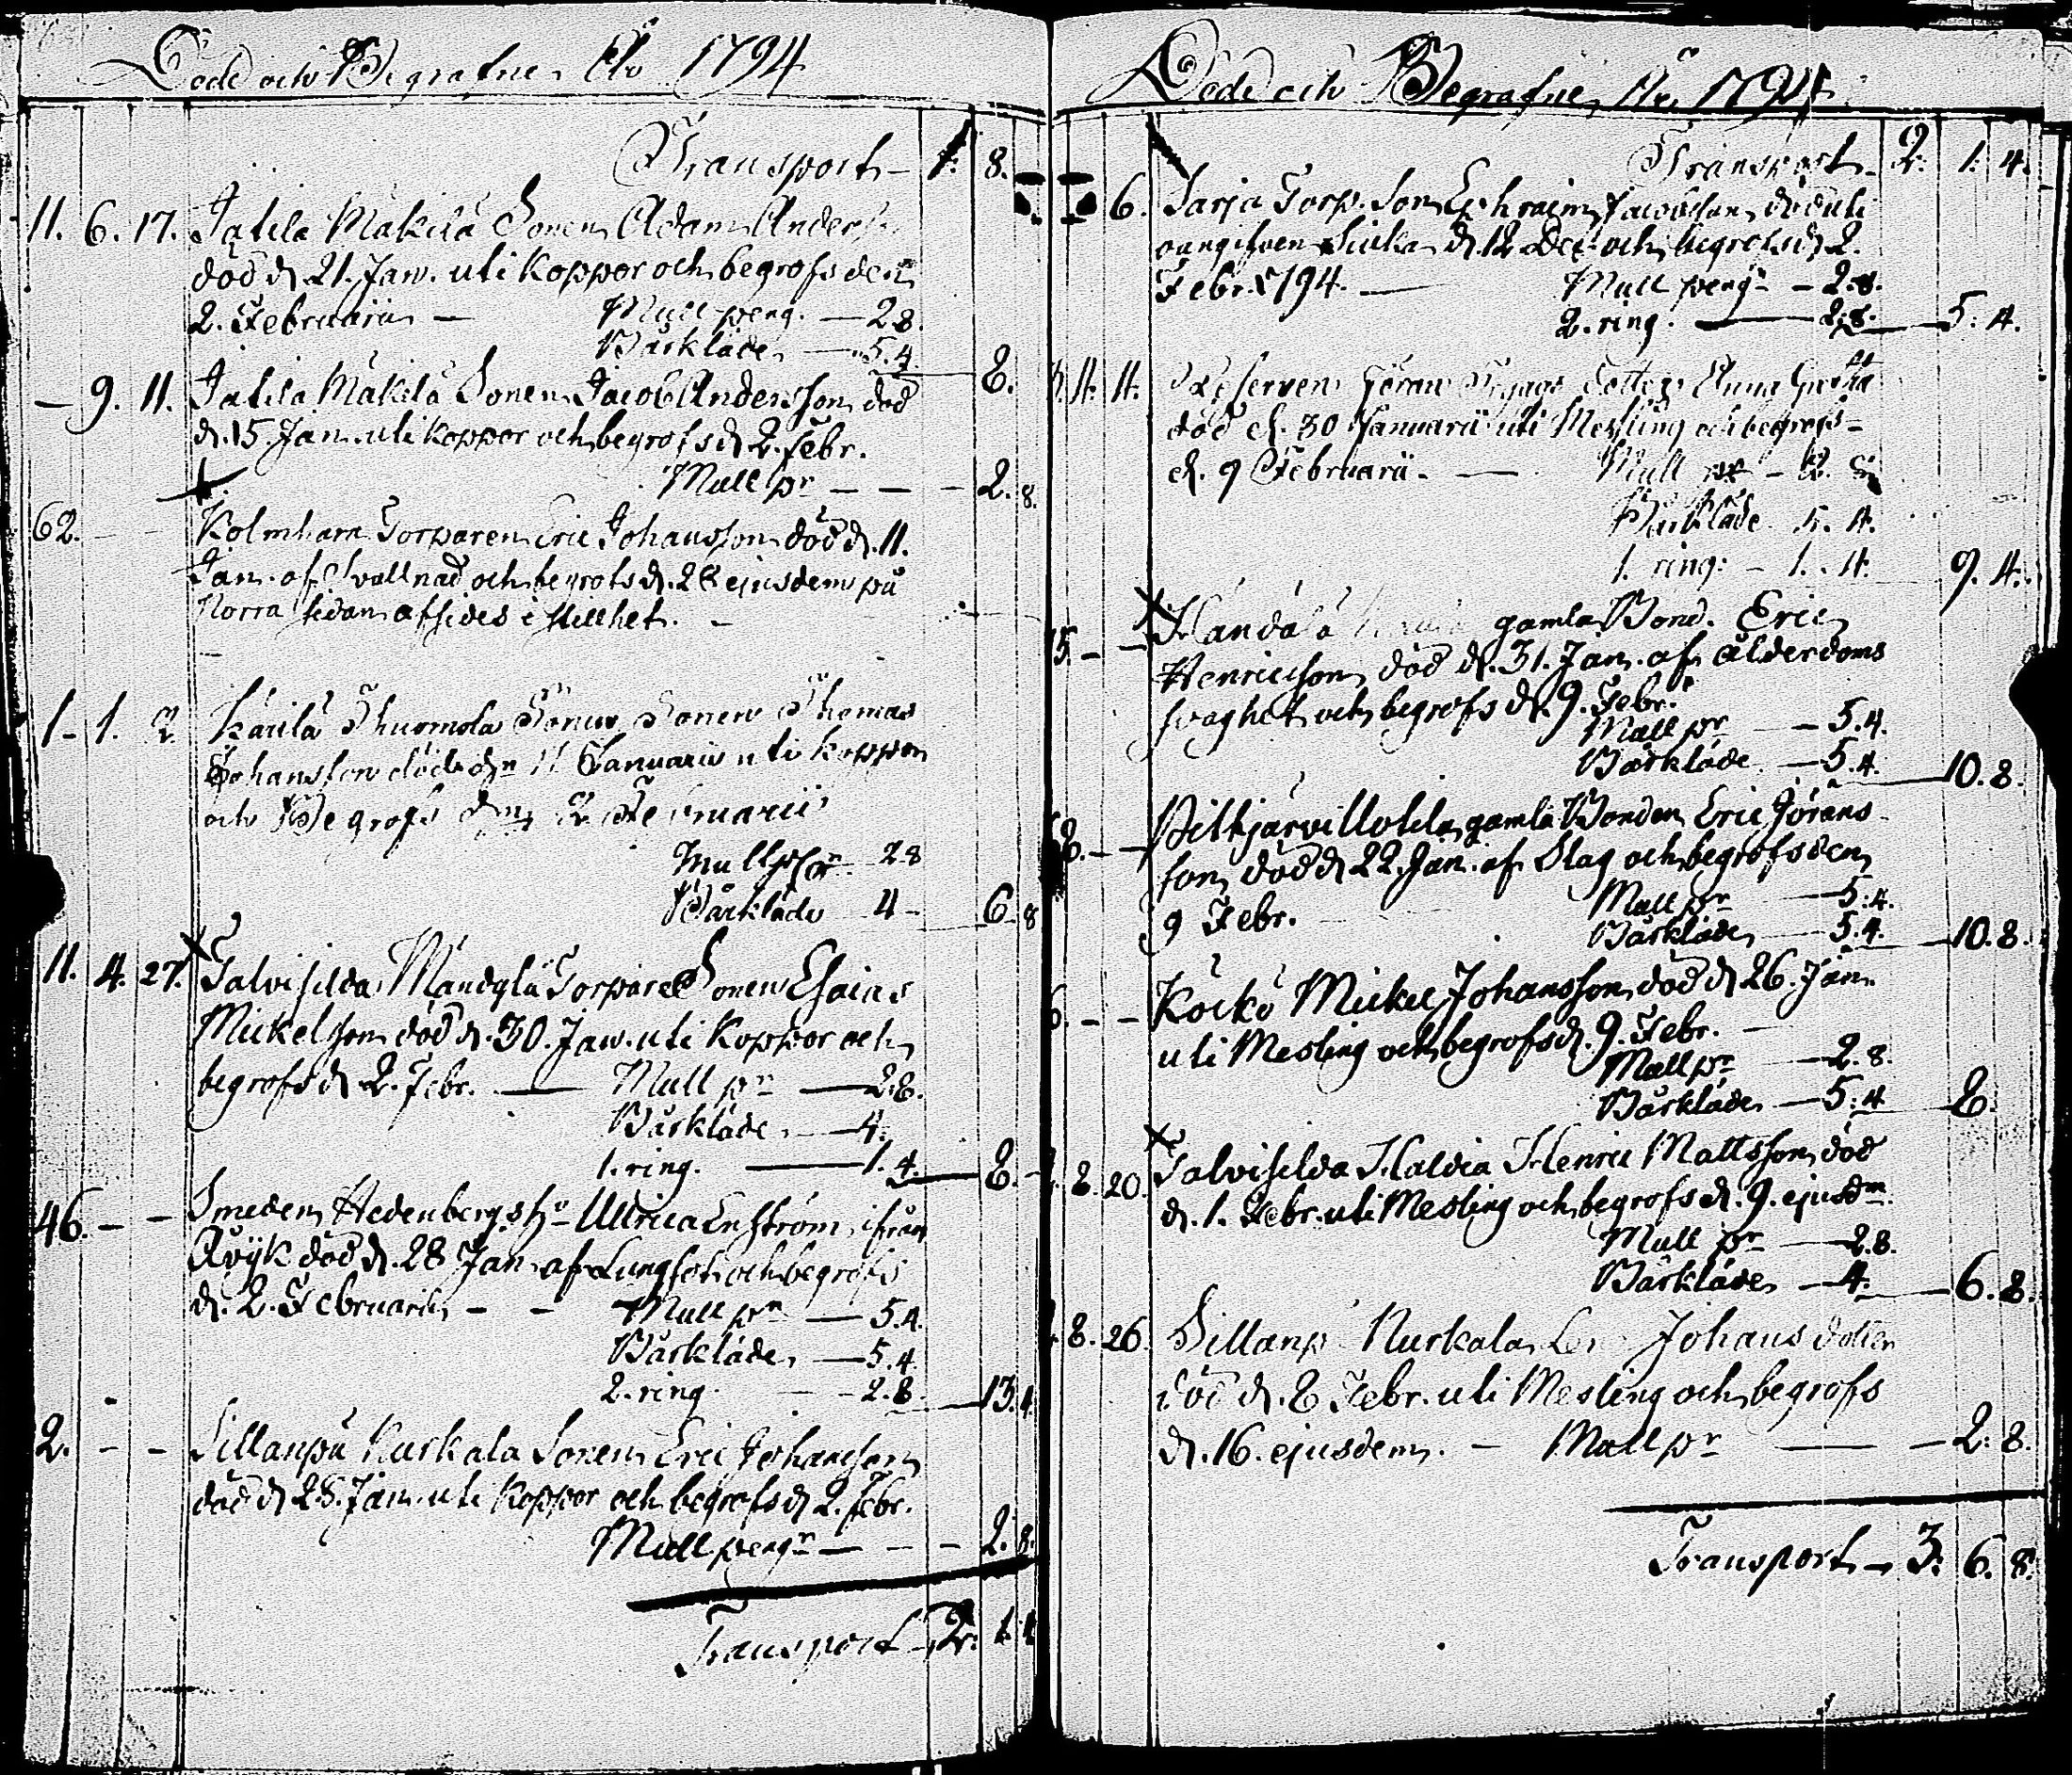 Döde och Begrafne Åhr 1794
Transport — 1: 8.
11. 6. 17. Jatila Mäkilä Sonen Adam Anders
död d. 21. Jan. uti Koppor och begrofs den
2. Februarii — Mull peng. — 2 8.
Bårkläde — 5.4. 8.
— 9. 11. Jatila Mäkilä Sonen Jacob Andersson död
d. 15. Jan. uti koppor och begrofs d. 2. Febr.
Mull pr — — — 2. 8.
62. — — Kolmhara Torparen Eric Johansson död d. 11.
Jan. af Svallnad och begrofs d. 28 ejusdem på
Norra sidan afsides i stillhet. —
1 - 1. 2. Kärilä Thuomola Sonen Thomas
Johansson död d:n 11 Januarii uti koppor
och Begrofs den 2 Februarii
Mull pr 2 8
Bårkläde 4 — 6. 8
11. 4. 27. Talvisilda Mändylä Torpare Sonen Esaias
Mickelson död d. 30. Jan. uti Koppor och
begrofs d. 2. Febr. — Mull pr — 2.8.
Bårkläde — 4.
1. ring. — 1. 4. — 8. —
46. — — Smeden Hedenbergs h:u Ulrica Enström ifrån
Åvijk död d. 28 Jan. af Lungsot och begrofs
d. 2. Februarii — — Mull pr — 5.4.
Bårkläde — 5.4.
2. ring. — 2.8. 13. 4.
2. — — Sillanpä Kurkala Sonen Eric Johansson
död d. 28. Jan. uti Koppor och begrofs d. 2. Febr.
Mull pengr — — — 2. 8.
Transport 2: 1. 4
Döde och Begrafne Åhr 1794
Transport 2. 1. 4.
6. Sarja Torp. Son Ephraim Jacobsson död uti
oangifven Siuka d. 12 Dec. och begrofs d. 2.
Febr. 1794. — Mull pengr — 2.8.
2. ring. — 2.8. — 5. 4.
4. 4. Reserven Göran Dotter Anna Greta
död d. 30 Januarii uti Messling och begrofs
d. 9 Februarii. — Mull pr — 2. 8
Bårkläde 5. 4.
1. ring: — 1. 4. 9. 4.
5. — — gamla Bond. Eric
Henricsson död d. 31. Jan. af ålderdoms
svaghet och begrofs d. 9. Febr.
Mull pr — 5.4.
Bårkläde — 5.4. — 10. 8.
8. — — Pitkjärvi Uotila gamla Bonden Eric Görans
son död d. 22. Jan. af Slag och begrofs den
9 Febr. Mull pr — 5.4.
Bårkläde — 5.4. — 10. 8.
6. — — Köckö Mickel Johansson död d. 26. Jan.
uti Mesling och begrofs d. 9. Febr. —
Mull pr — 2. 8.
Bårkläde — 5. 4 8.
8. 20. Talvisilda Haldia Henric Mattsson död
d. 1. Febr. uti Mesling och begrofs d. 9. ejusdm
Mull pr — 2.8.
Bårkläde — 4. — 6. 8.
8. 26. Sillanp Kurkala Johans dotter
död d. 8 Febr. uti Mesling och begrofs
d. 16. ejusdem. — Mull pr — — 2. 8.
Transport — 3. 6. 8.